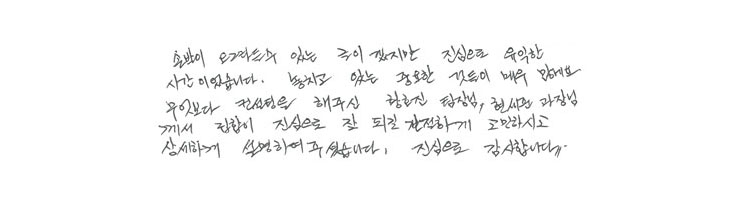 손발이 오그라드는수 있는 극이 겠지만 진심으로 유익한
시간이었습니다. 놓치고 있는 중요한 것들이 매우 많네요
무엇보다 컨설팅을 해주신 황호진 팀장님, 과장님
께서 진심으로 잘 되길 고민하시고
상세하게 설명하여주셨습니다. 진심으로 감사합니다.